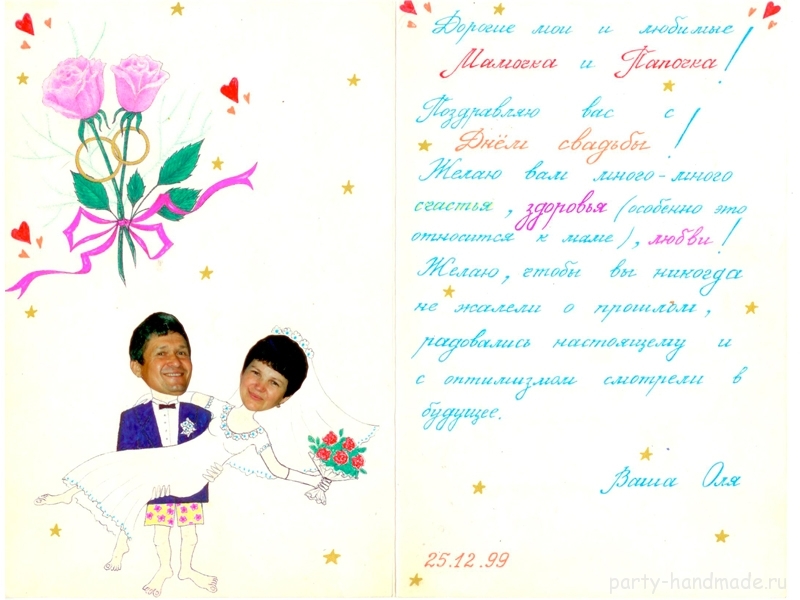 Дорогие мои и любимые
Мамочка и Папочка!
Поздравляю вас с
Днём свадьбы!
Желаю вам много-много
счастья, здоровья (особенно это
относится к маме), любви!
Желаю, чтобы вы никогда
не жалели о прошлом,
радовались настоящему и
с оптимизмом смотрели в
будущее.
Ваша Оля
25.12.99
party-handmade.ru